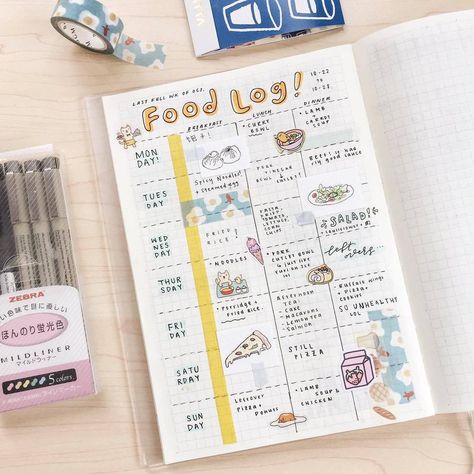 LAST FULL WK OF OCT.
Food Log!
10-22
TO
10-28.
BREAKFAST
LUNCH
DINNER
MON
DAY!
• CURRY
BOWL
• LAMB
+
CARROT
SOUP
TUES
DAY
Spicy Noodles!
+ steamed egg
PORK
BOWL
Beef! it had
rly good sauce
WED
NES
DAY
FRIED
RICE!
PASTA
TOMATO,
LETTUCE,
CORN
CHIPS
SALAD!
THUR
SDAY
• NOODLES
• PORK
CUTLET BOWL
left
overs...
FRI
DAY
• Porridge +
Fried Rice.
AFTERNOON
TEA
- CAKE
- MACARONS
- LEMON TEA
- SALMON
• Buffalo Wings
+ PIZZA +
COOKIES
SO UNHEALTHY
LOL
SATUR
DAY
STILL
PIZZA
SUN
DAY
• Leftover
Pizza +
Donuts
• LAMB
SOUP &
CHICKEN
ZEBRA
ほんのり蛍光色
MILDLINER
マイルドライナー
5 colors